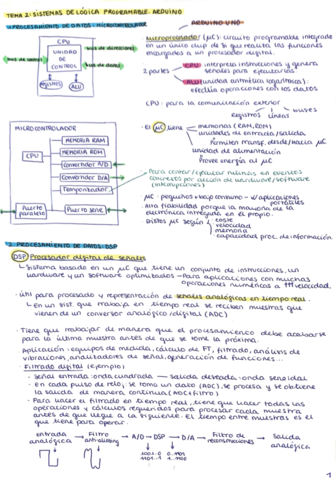 TEMA 2: SISTEMAS DE LÓGICA PROGRAMABLE. ARDUINO
1. PROCESAMIENTO DE DATOS: MICROCONTROLADOR
ARDUINO UNO
CPU
UNIDAD
DE
CONTROL
REGISTROS
ALU
bus de direcciones
bus de datos
Microprocesador (µC): circuito programable integrado
en un único chip de Si que realiza las funciones
encargadas a un procesador digital.
2 partes
CPU interpreta instrucciones y genera
señales para ejecutarlas
ALU (unidad aritmético lógica):
efectúa operaciones con los datos
CPU: para la comunicación exterior
registros líneas buses
MICROCONTROLADOR
CPU
MEMORIA RAM
MEMORIA ROM
Convertidor A/D
Convertidor D/A
Temporizador
Puerto
paralelo
Puerto serie
· El µC tiene
memorias (RAM, ROM)
unidades de entrada/salida
Permiten transf. desde/hacia µC
unidad de alimentación
Provee energía al µC
Para crear/ejecutar rutinas en
concretos por acción de hardware/software
(interrupciones)
µC pequeños → bajo consumo → aplicaciones
portátiles
Alta fiabilidad porque la mayoría de la
electrónica integrada en el propio.
Distos µC según
coste
velocidad
memoria
capacidad proc. de información
2. PROCESAMIENTO DE DATOS: DSP
DSP Procesador digital de señales
↳ Sistema basado en un µC que tiene un conjunto de instrucciones, un
hardware y un software optimizados → Para aplicaciones con muchas
operaciones numéricas a ↑↑ velocidad.
· útil para procesado y representación de señales analógicas en tiempo real.
↳ En un sist. que trabaja en tiempo real se reciben muestras que
vienen de un conversor analógico/digital (ADC)
· Tiene que trabajar de manera que el procesamiento debe acabarse
para la última muestra antes de que se tome la próxima.
· Aplicación: equipos de medida, cálculo de FT, filtrado, análisis de
vibraciones, analizadores de señal, generación de funciones...
· Filtrado digital (ejemplo)
- Señal entrada: onda cuadrada → salida deseada: onda senoidal
- En cada pulso de reloj, se toma un dato (ADC), se procesa y se obtiene
la salida de manera continua (ADC + filtro)
- Para hacer el filtrado en tiempo real, tiene que hacer todas las
operaciones y cálculos requeridos para procesar cada muestra
antes de que llegue a la siguiente. El tiempo entre muestras es el
que tiene para operar.
entrada
analógica
→ Filtro
anti-aliasing
→ A/D → DSP → D/A →
Filtro de
reconstrucción
→ Salida
analógica
1